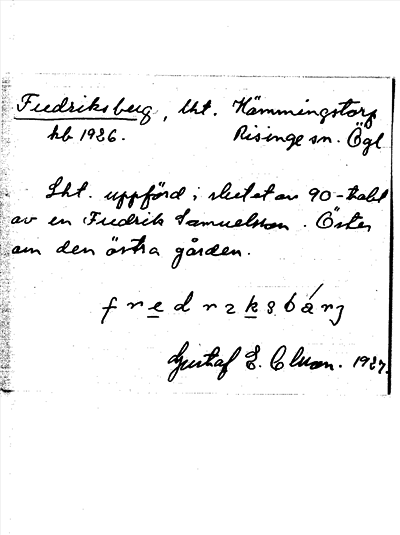 Fredriksberg, lht. Hämmingstorp
hb 1926. Risinge sn. Ögl
Lht. uppförd i slutet av 90-talet
av en Fredrik Samuelsson. Öster
om den östra gården.
fredrzksbárj
Gustaf E. Olsson. 1927.